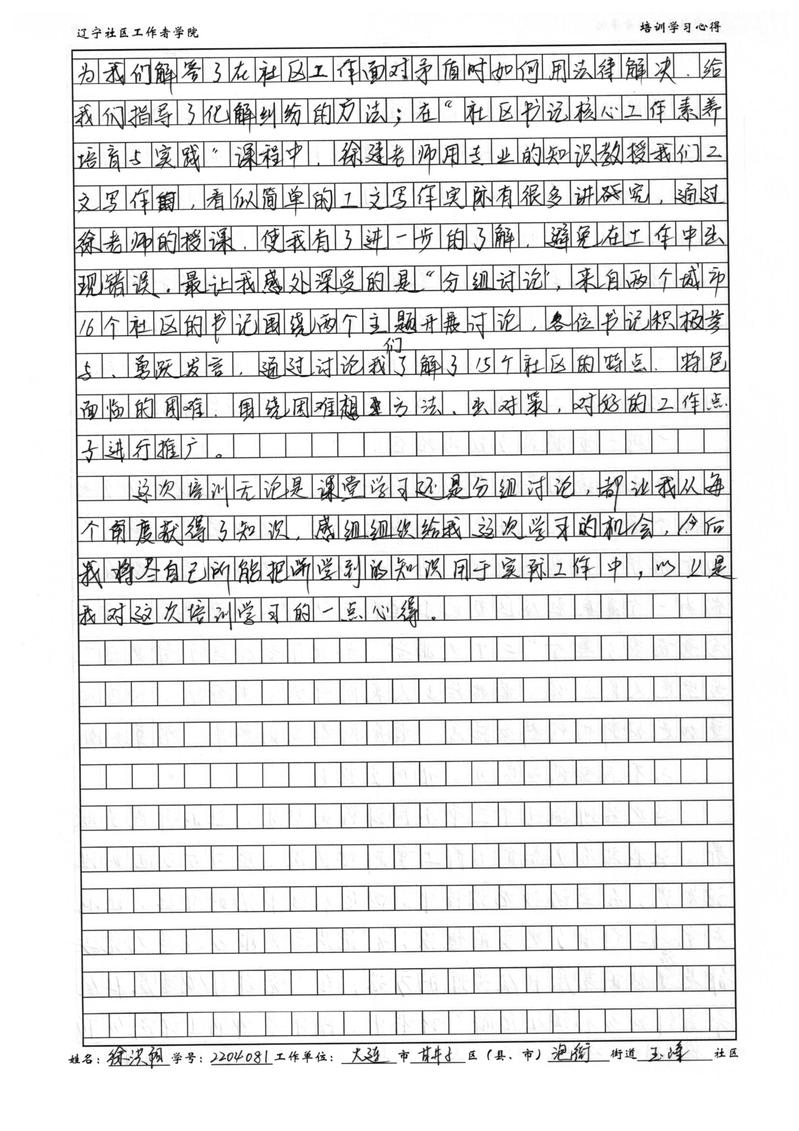 辽宁社区工作者学院 培训学习心得
为我们解答了在社区工作面对矛盾时如何用法律解决.给
我们指导了化解纠纷的方法；在“社区书记核心工作素养
培育与实践”课程中.徐建老师用专业的知识教授我们工
文写作，看似简单的工文写作实际有很多讲研究，通过
徐老师的授课.使我有了进一步的了解.避免在工作中出
现错误.最让我感处深受的是“分组讨论”，来自两个城市
16个社区的书记围绕两个主题开展讨论，各位书记积极参
与、勇跃发言，通过讨论我们了解了15个社区的特点.特色
面临的困难.围绕困难想方法、出对策，对好的工作点
子进行推广。
这次培训无论是课堂学习还是分组讨论，都让我从每
个角度获得了知识，感组组织给我这次学习的机会，今后
我将尽自己所能把所学到的知识用于实际工作中，以上是
我对这次培训学习的一点心得。
姓名：徐洪 学号：2204081 工作单位：大连 市 甘井子 区（县、市） 泡街 街道 玉峰 社区